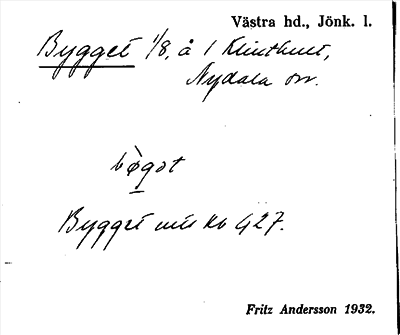 Västra hd., Jönk. l.
Bygget 1/8, å 1 Klinthult,
Nydala sn.
bø̀gət
Bygget uti kb 427.
Fritz Andersson 1932.